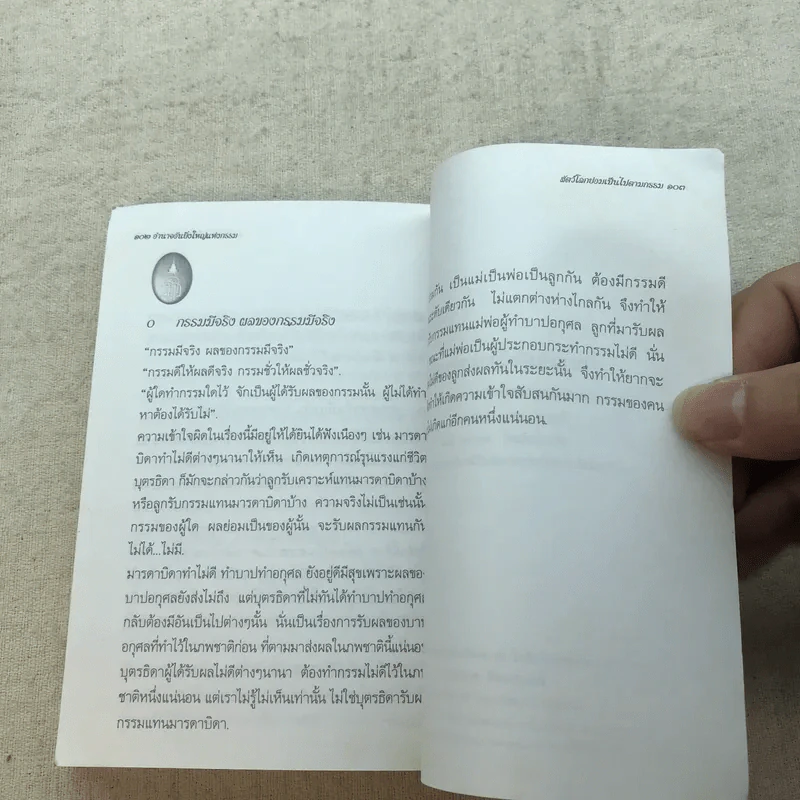 ๑๐๒ อำนาจอันยิ่งใหญ่แห่งกรรม
๐ กรรมมีจริง ผลของกรรมมีจริง
“กรรมมีจริง ผลของกรรมมีจริง”
“กรรมดีให้ผลดีจริง กรรมชั่วให้ผลชั่วจริง”.
“ผู้ใดทำกรรมใดไว้ จักเป็นผู้ได้รับผลของกรรมนั้น ผู้ไม่ได้ทำ
หาต้องได้รับไม่”.
ความเข้าใจผิดในเรื่องนี้มีอยู่ให้ได้ยินได้ฟังเนืองๆ เช่น มารดา
บิดาทำไม่ดีต่างๆนานาให้เห็น เกิดเหตุการณ์รุนแรงแก่ชีวิต
บุตรธิดา ก็มักจะกล่าวกันว่าลูกรับเคราะห์แทนมารดาบิดาบ้าง
หรือลูกรับกรรมแทนมารดาบิดาบ้าง ความจริงไม่เป็นเช่นนั้น
กรรมของผู้ใด ผลย่อมเป็นของผู้นั้น จะรับผลกรรมแทนกัน
ไม่ได้...ไม่มี.
มารดาบิดาทำไม่ดี ทำบาปทำอกุศล ยังอยู่ดีมีสุขเพราะผลของ
บาปอกุศลยังส่งไม่ถึง แต่บุตรธิดาที่ไม่ทันได้ทำบาปทำอกุศล
กลับต้องมีอันเป็นไปต่างๆนั้น นั่นเป็นเรื่องการรับผลของบาป
อกุศลที่ทำไว้ในภพชาติก่อน ที่ตามมาส่งผลในภพชาตินี้แน่นอน
บุตรธิดาผู้ได้รับผลไม่ดีต่างๆนานา ต้องทำกรรมไม่ดีไว้ใน
ชาติหนึ่งแน่นอน แต่เราไม่รู้ไม่เห็นเท่านั้น ไม่ใช่บุตรธิดารับผล
กรรมแทนมารดาบิดา.
สัตว์โลกย่อมเป็นไปตามกรรม ๑๐๓
กัน เป็นแม่เป็นพ่อเป็นลูกกัน ต้องมีกรรมดี
ระดับเดียวกัน ไม่แตกต่างห่างไกลกัน จึงทำให้
กรรมแทนแม่พ่อผู้ทำบาปอกุศล ลูกที่มารับผล
ขณะที่แม่พ่อเป็นผู้ประกอบกระทำกรรมไม่ดี นั่น
ไม่ดีของลูกส่งผลทันในระยะนั้น จึงทำให้ยากจะ
ทำให้เกิดความเข้าใจสับสนกันมาก กรรมของคน
เกิดแก่อีกคนหนึ่งแน่นอน.